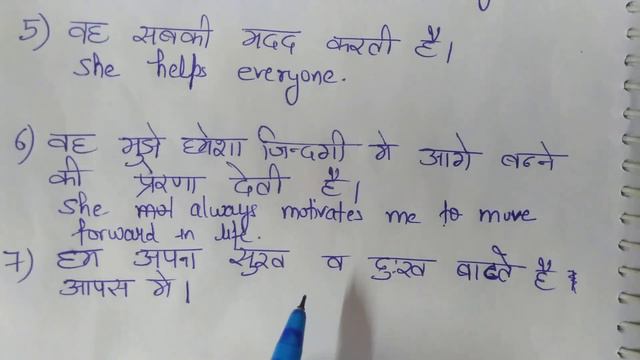 5) वह सबकी मदद करती है।
She helps everyone.
6) वह मुझे हमेशा जिन्दगी मे आगे बढने
की प्रेरणा देती है।
She always motivates me to move
forward in life.
7) हम अपना सुख व दुःख बाटते है
आपस मे।